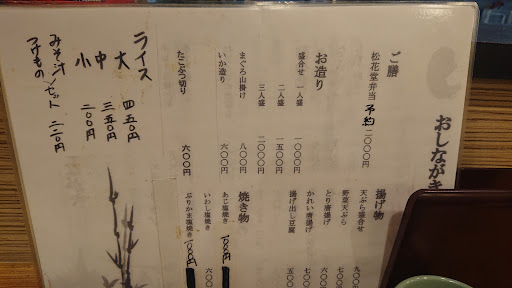 おしながき
ご膳
松花堂弁当 予約 二〇〇〇円
お造り
盛合せ 一人盛 一〇〇〇円
二人盛 一五〇〇円
三人盛 二〇〇〇円
まぐろ山掛け 八〇〇円
いか造り 六〇〇円
たこぶつ切り 六〇〇円
ライス
大 四五〇円
中 三五〇円
小 二〇〇円
みそ汁セット 二二〇円
つけもの
揚げ物
天ぷら盛合せ 九〇
野菜天ぷら 六〇
とり唐揚げ 七〇
かれい唐揚げ 七〇〇
揚げ出し豆腐 五〇〇
焼き物
あじ塩焼き 一〇〇〇円
いわし塩焼き 六〇〇
ぶりかま塩焼き 一〇〇〇円